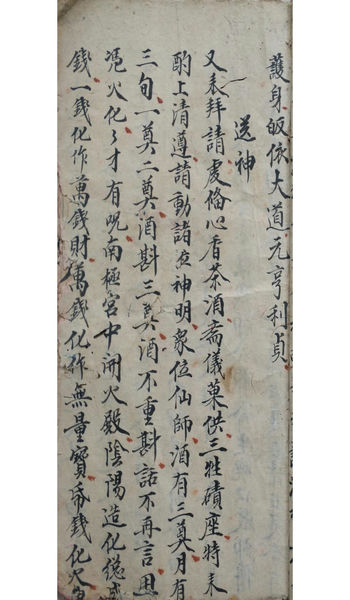 護身皈依大道元亨利貞
送神
又来拜請處俻心香茶酒斋儀菓供三牲磧座特来
酌上清遵請動諸位神明衆位仙師酒有三奠月有
三旬一奠二奠酒斟三奠酒不重斟話不再言思
憑火化々才有呪南極宮中開火殿陰陽造化總成
錢一錢化作萬錢財萬錢化作無量寳帋錢化火